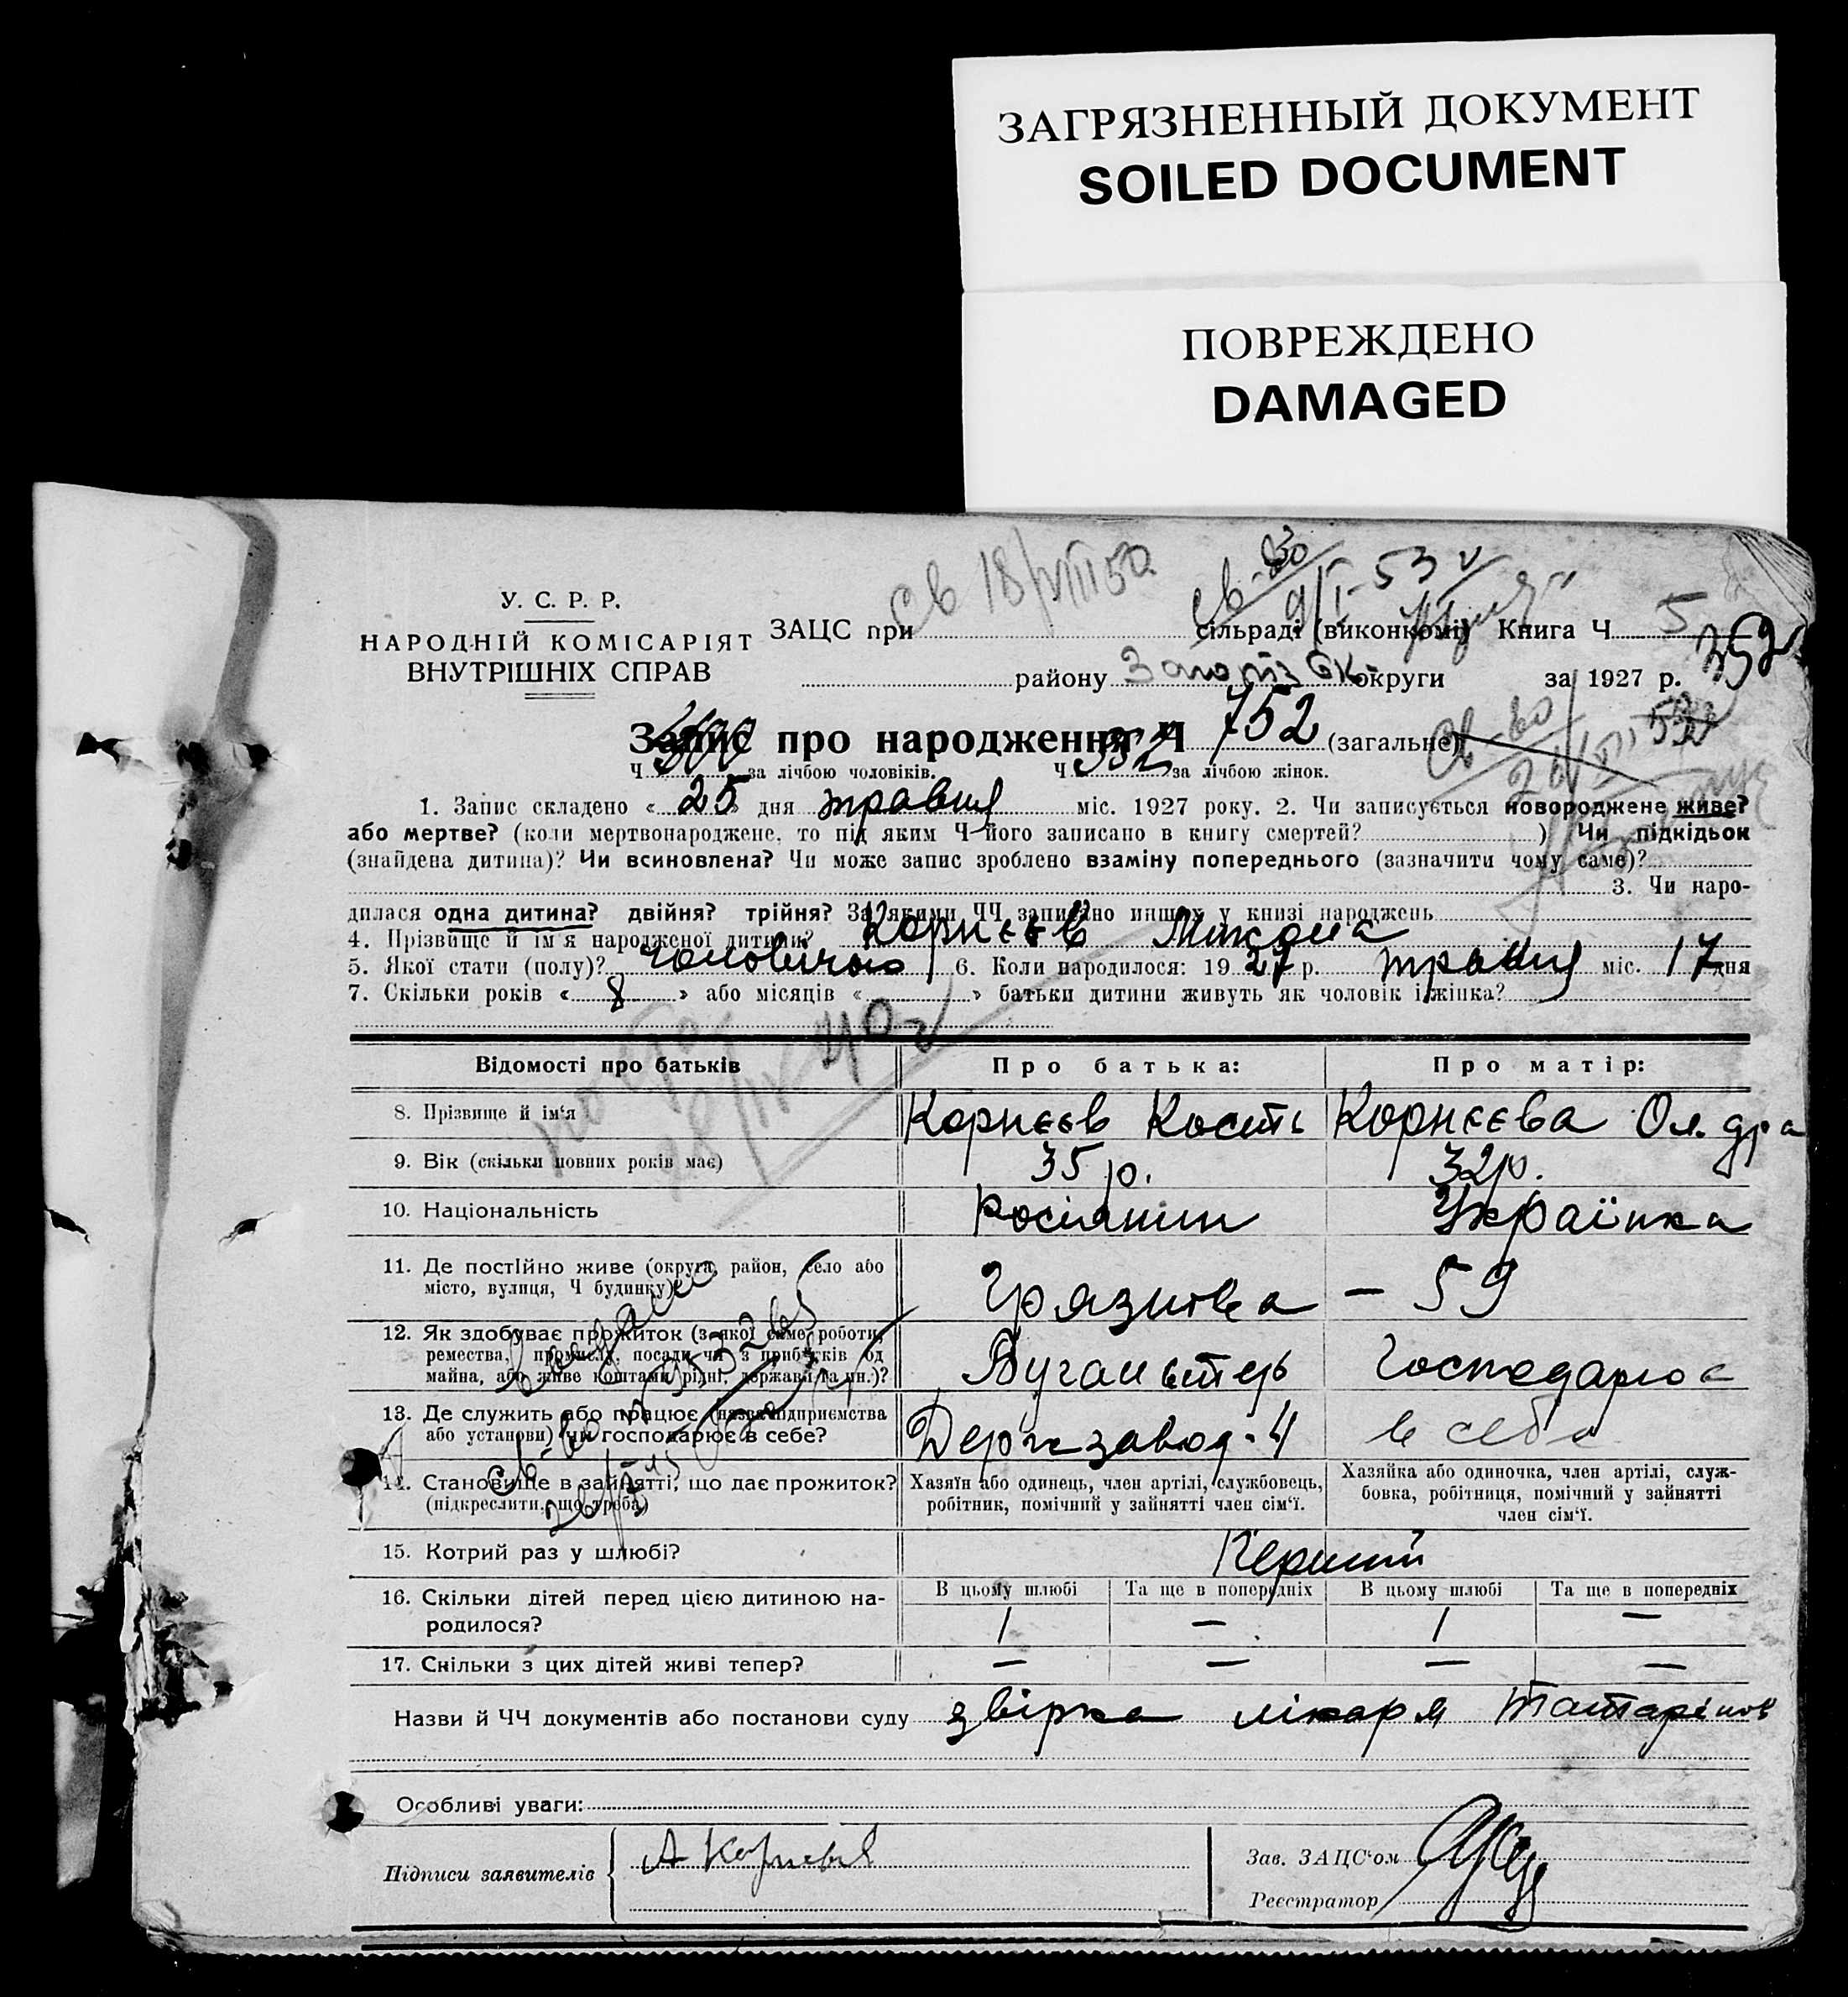 ЗАГРЯЗНЕННЫЙ ДОКУМЕНТ
SOILED DOCUMENT
ПОВРЕЖДЕНО
DAMAGED
Св 18/VIII 50
У. С. Р. Р.
НАРОДНІЙ КОМІСАРІЯТ
ВНУТРІШНІХ СПРАВ
ЗАЦС при сільраді (виконкомі) Книга Ч. 5
району Запоріз ок округи за 1927 р.
352
Запис про народження Ч 752 (загальне)
Ч. за лічбою чоловіків. Ч 352 за лічбою жінок.
1. Запис складено « 25 » дня травня міс. 1927 року. 2. Чи записується новороджене живе?
або мертве? (коли мертвонароджене, то під яким Ч його записано в книгу смертей? ) Чи підкідьок
(знайдена дитина)? Чи всиновлена? Чи може запис зроблено взаміну попереднього (зазначити чому саме)?
3. Чи наро-
дилася одна дитина? двійня? трійня? За якими ЧЧ записано инших у книзі народжень
4. Прізвище й ім'я народженої дитини? Корнєєв Микола
5. Якої стати (полу)? чоловічою 6. Коли народилося: 19 27 р. травня міс. 17 дня
7. Скільки років « 8 » або місяців « » батьки дитини живуть як чоловік і жінка?
Відомості про батьків Про батька: Про матір:
8. Прізвище й ім'я Корнєєв Кость Корнєєва Ол. дра
9. Вік (скільки повних років має) 35 р. 32 р.
10. Національність Росіянин Українка
11. Де постійно живе (округа, район, село або
місто, вулиця, Ч будинку) Грязнова – 59
12. Як здобуває прожиток (з якої саме роботи,
ремества, промислу, посади чи з прибутків од
майна, або живе коштами рідні, держави та ин.)? Бугальтер Господарює
13. Де служить або працює (назва підприємства
або установи) чи господарює в себе? Держзавод. 4 в себе
14. Становище в зайнятті, що дає прожиток?
(підкреслити, що треба)
Хазяїн або одинець, член артілі, службовець,
робітник, помічний у зайнятті член сім'ї.
Хазяйка або одиночка, член артілі, служ-
бовка, робітниця, помічний у зайнятті
член сім'ї.
15. Котрий раз у шлюбі? Перший
16. Скільки дітей перед цією дитиною на-
родилося?
В цьому шлюбі Та ще в попередніх В цьому шлюбі Та ще в попередніх
1 – 1 –
17. Скільки з цих дітей живі тепер? – – – –
Назви й ЧЧ документів або постанови суду звірка лікаря Татарінов
Особливі уваги:
Підписи заявителів А Корнева
Зав. ЗАЦС'ом
Реєстратор